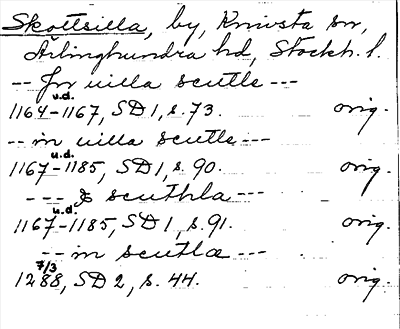 Skottsilla, by, Knivsta sn,
Ärlinghundra hd, Stockh. l.
-- Jn uilla scutle ---
u.d.
1164-1167, SD 1, s. 73. orig.
-- in uilla scutle ---
u.d.
1167-1185, SD 1, s. 90. orig.
--- & scuthla ---
u.d.
1167-1185, SD 1, s. 91. orig.
-- in scutlæ ---
7/3
1288, SD 2, s. 44. orig.